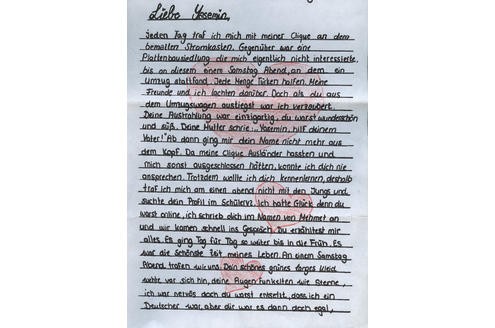 Liebe Yasemin,
Jeden Tag traf ich mich mit meiner Clique an dem
bemalten Stromkasten. Gegenüber war eine
Plattenbausiedlung die mich eigentlich nicht interessierte,
bis an diesem einem Samstag Abend, an dem ein
Umzug stattfand. Jede Menge Türken halfen. Meine
Freunde und ich lachten darüber. Doch als du aus
dem Umzugswagen ausstiegst war ich verzaubert.
Deine Austrahlung war einzigartig, du warst wunderschön
und süß. Deine Mutter schrie: „Yasemin, hilf deinem
Vater!" Ab dann ging mir dein Name nicht mehr aus
dem Kopf. Da meine Clique Ausländer hassten und
mich sonst ausgeschlossen hätten, konnte ich dich nie
ansprechen. Trotzdem wollte ich dich kennenlernen, deshalb
traf ich mich am einen abend nicht mit den Jungs und
suchte dein Profil im SchülerVz. Ich hatte Glück, denn du
warst online, ich schrieb dich im Namen von Mehmet an
und wir kamen schnell ins Gespräch. Du erzähltest mir
alles. Es ging Tag für Tag so weiter bis in die Früh. Es
war die Schönste Zeit meines Leben. An einem Samstag
Abend trafen wir uns. Dein schönes grünes langes Kleid
wehte vor sich hin, deine Augen Funkelten wie Sterne,
ich war nervös doch du warst entsetzt, dass ich ein
Deutscher war, aber dir war es dann doch egal,